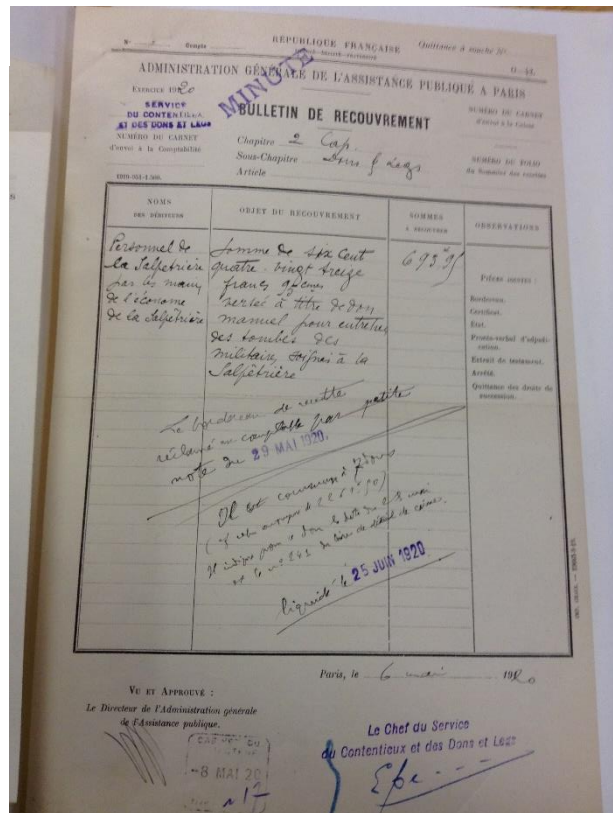 RÉPUBLIQUE FRANÇAISE
Compte
Quittance à souche N°
G-44.
ADMINISTRATION GÉNÉRALE DE L'ASSISTANCE PUBLIQUE A PARIS
EXERCICE 1920
MINUTE
SERVICE
DU CONTENTIEUX
ET DES DONS ET LEGS
BULLETIN DE RECOUVREMENT
NUMÉRO DU CARNET
d'envoi à la Comptabilité
NUMÉRO DU CARNET
d'envoi à la Caisse
Chapitre 2 Cap.
Sous-Chapitre Dons & Legs
Article
NUMÉRO DU FOLIO
du Sommier des recettes
NOMS
DES DÉBITEURS
OBJET DU RECOUVREMENT
SOMMES
A RECOUVRER
OBSERVATIONS
Personnel de
la Salpêtrière
par les mains
de l'économe
de la Salpêtrière
Somme de six cent
quatre-vingt treize
francs
versée à titre de don
manuel pour entretien
des tombes des
militaires soignés à la
Salpêtrière
693.95
Pièces jointes :
Bordereau.
Certificat.
État.
Procès-verbal d'adjudi-
cation.
Extrait de testament.
Arrêté.
Quittance des droits de
succession.
Le bordereau de recette
réclamé en comptabilité par petite
note du 29 MAI 1920.
Il est
liquidé le 25 JUIN 1920
Paris, le 6 mai 1920
VU ET APPROUVÉ :
Le Directeur de l'Administration générale
de l'Assistance publique.
-8 MAI 20
Le Chef du Service
du Contentieux et des Dons et Legs